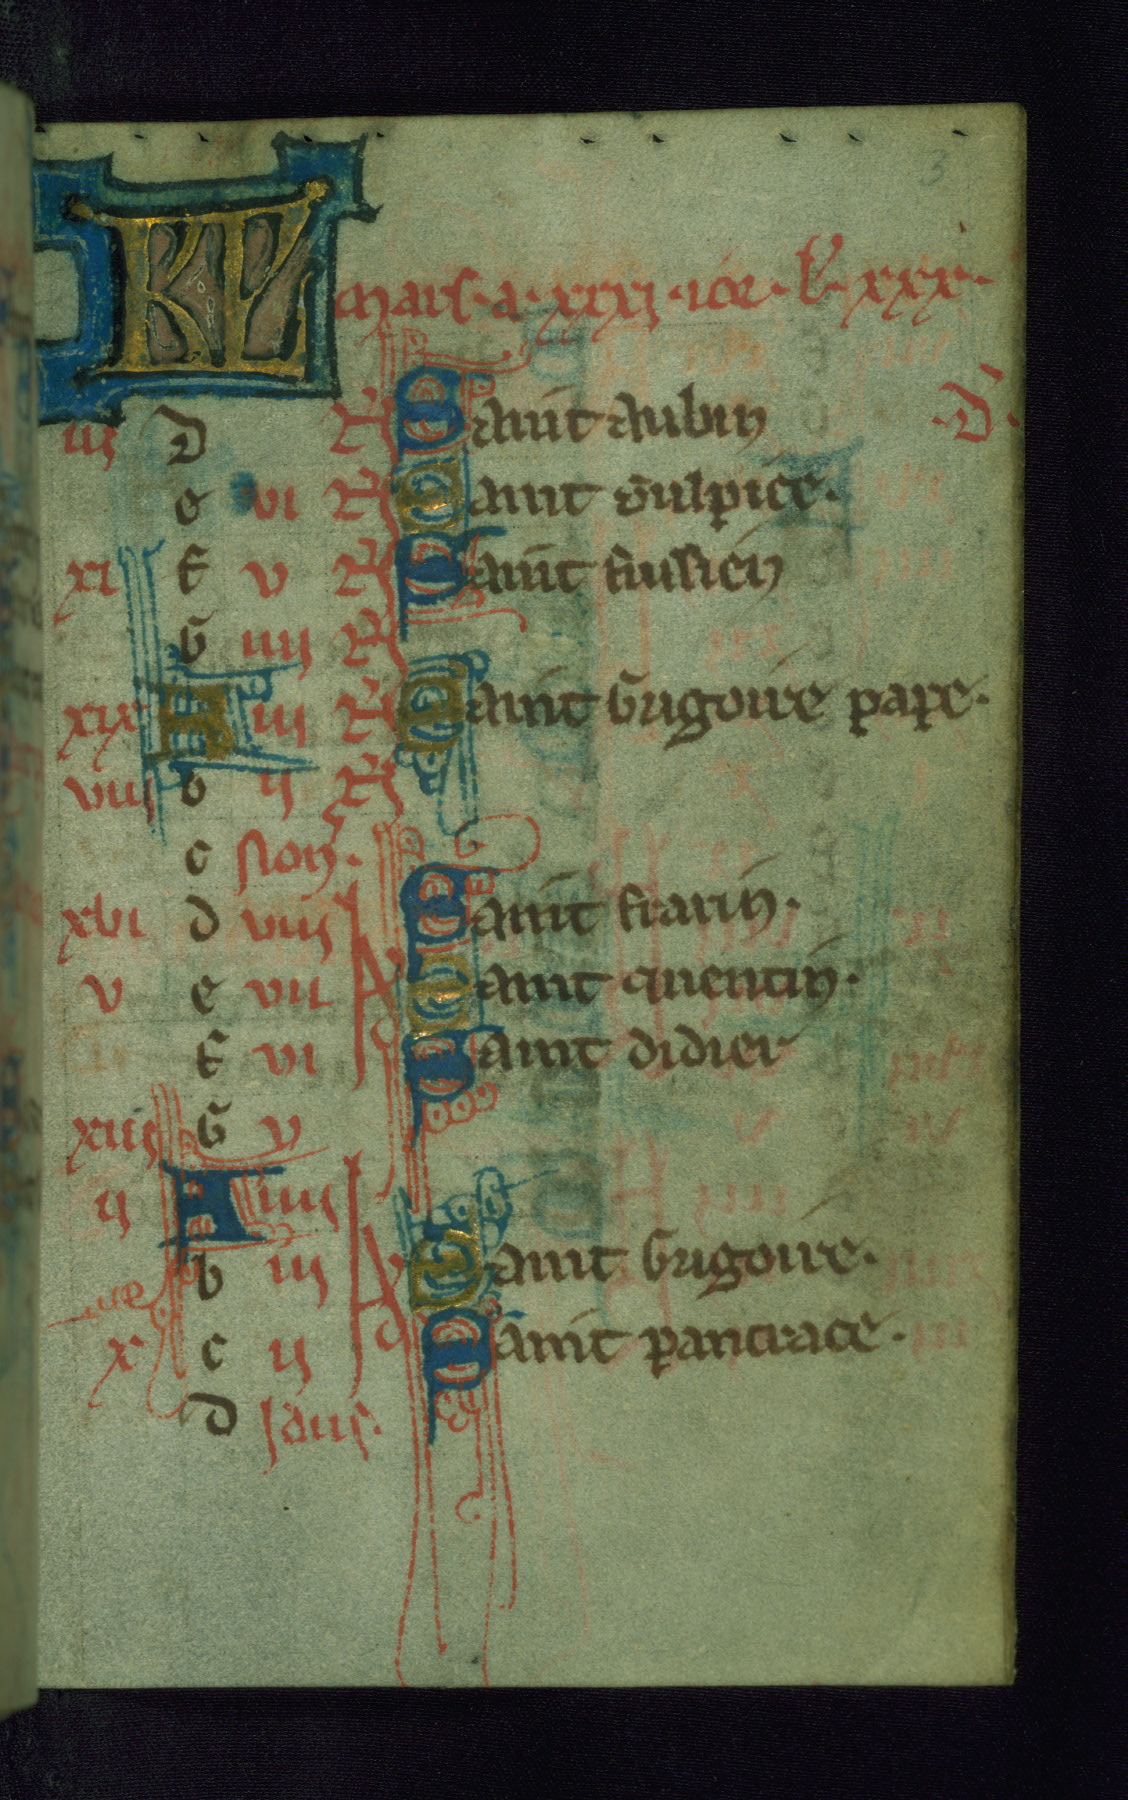 3
KL mars · a · xxxi · ior · l' · xxx ·
iii D N Saint aubin · D ·
e vi N Saint sulpice ·
xi f v N Saint fussien
G iiii N
xix A iii N Saint Grigoire pape ·
viii b ii N
c Non ·
xvi d viii Id Saint frarin ·
v e vii Saint quentin ·
f vi Saint didier
xiii G v
ii A iiii Id
b iii Saint Grigoire ·
x c ii Saint pancrace ·
d Idus ·